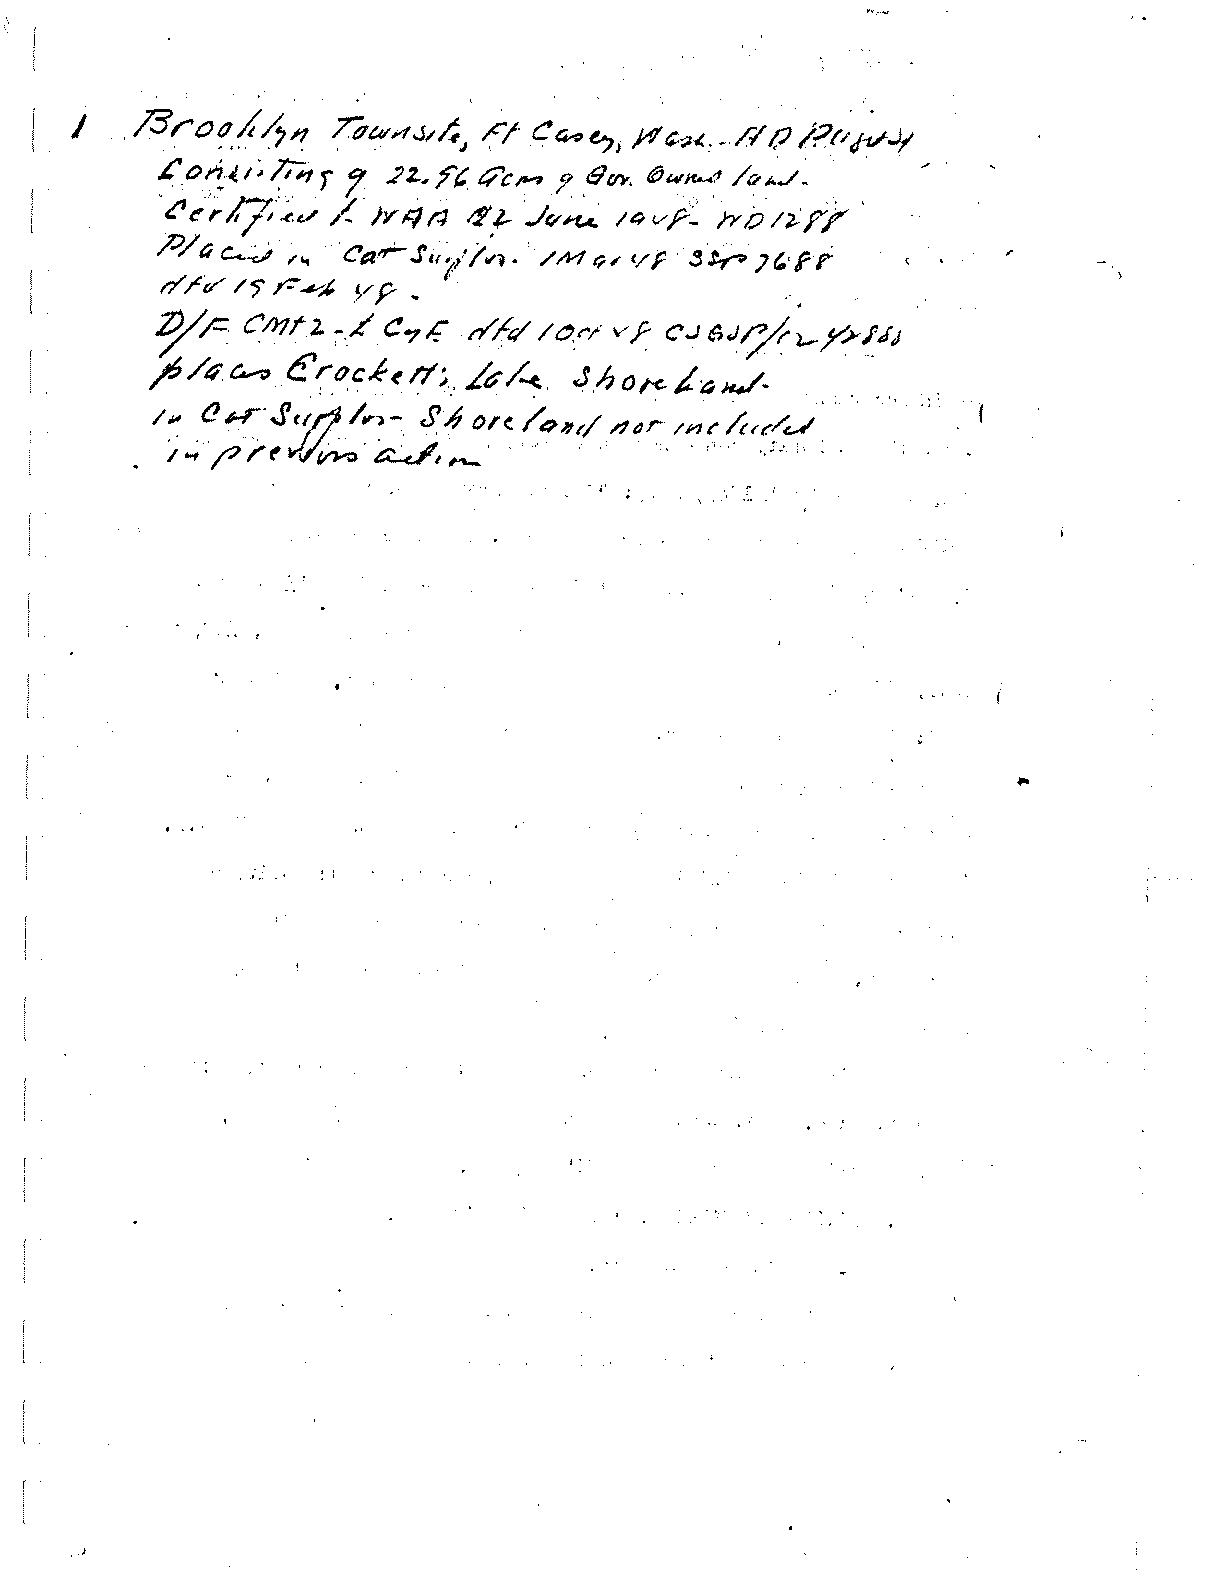 1 Brooklyn Townsite, Ft Casey, Wash. HD Puget
Consisting of 22.96 Acres of Gov. Owned land.
Certified to WAA 22 June 1948 - WD1288
Placed in Cat Surplus. 1 Mar 48 SSP 7688
dtd 19 Feb 48.
D/F CMt 2 - to CofE dtd 1 Oct 48
places Crockett's Lake Shore Land
in Cat Surplus - Shoreland not included
in previous action